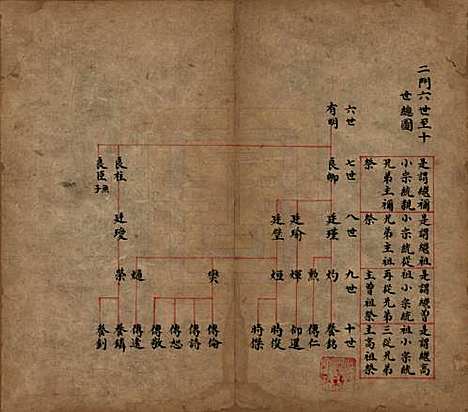 二門六世至十
世總圖
是謂繼禰小宗統親兄弟主禰祭
是謂繼祖小宗統從兄弟主祖祭
是謂繼曾祖小宗統再從兄弟主曾祖祭
是謂繼高祖小宗統三從兄弟主高祖祭
六世 七世 八世 九世 十世
有明
良卿
良柱
良臣 無子
廷瑾
廷瑜
廷璧
廷璦
灼
勲
煇
烜
爕
煬
榮
餐銘
傳仁
仰選
時俊
時傑
傳倫
傳詩
傳恕
傳敬
傳遠
餐鏞
餐釗